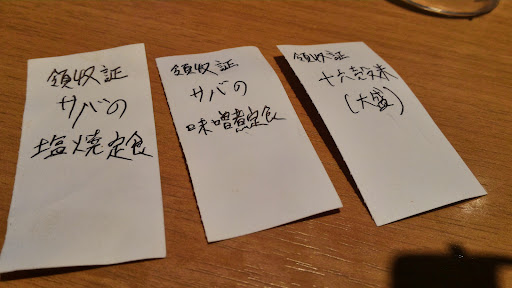 領収証
サバの
塩焼定食
領収証
サバの
味噌煮定食
領収証
十六穀米
(大盛)